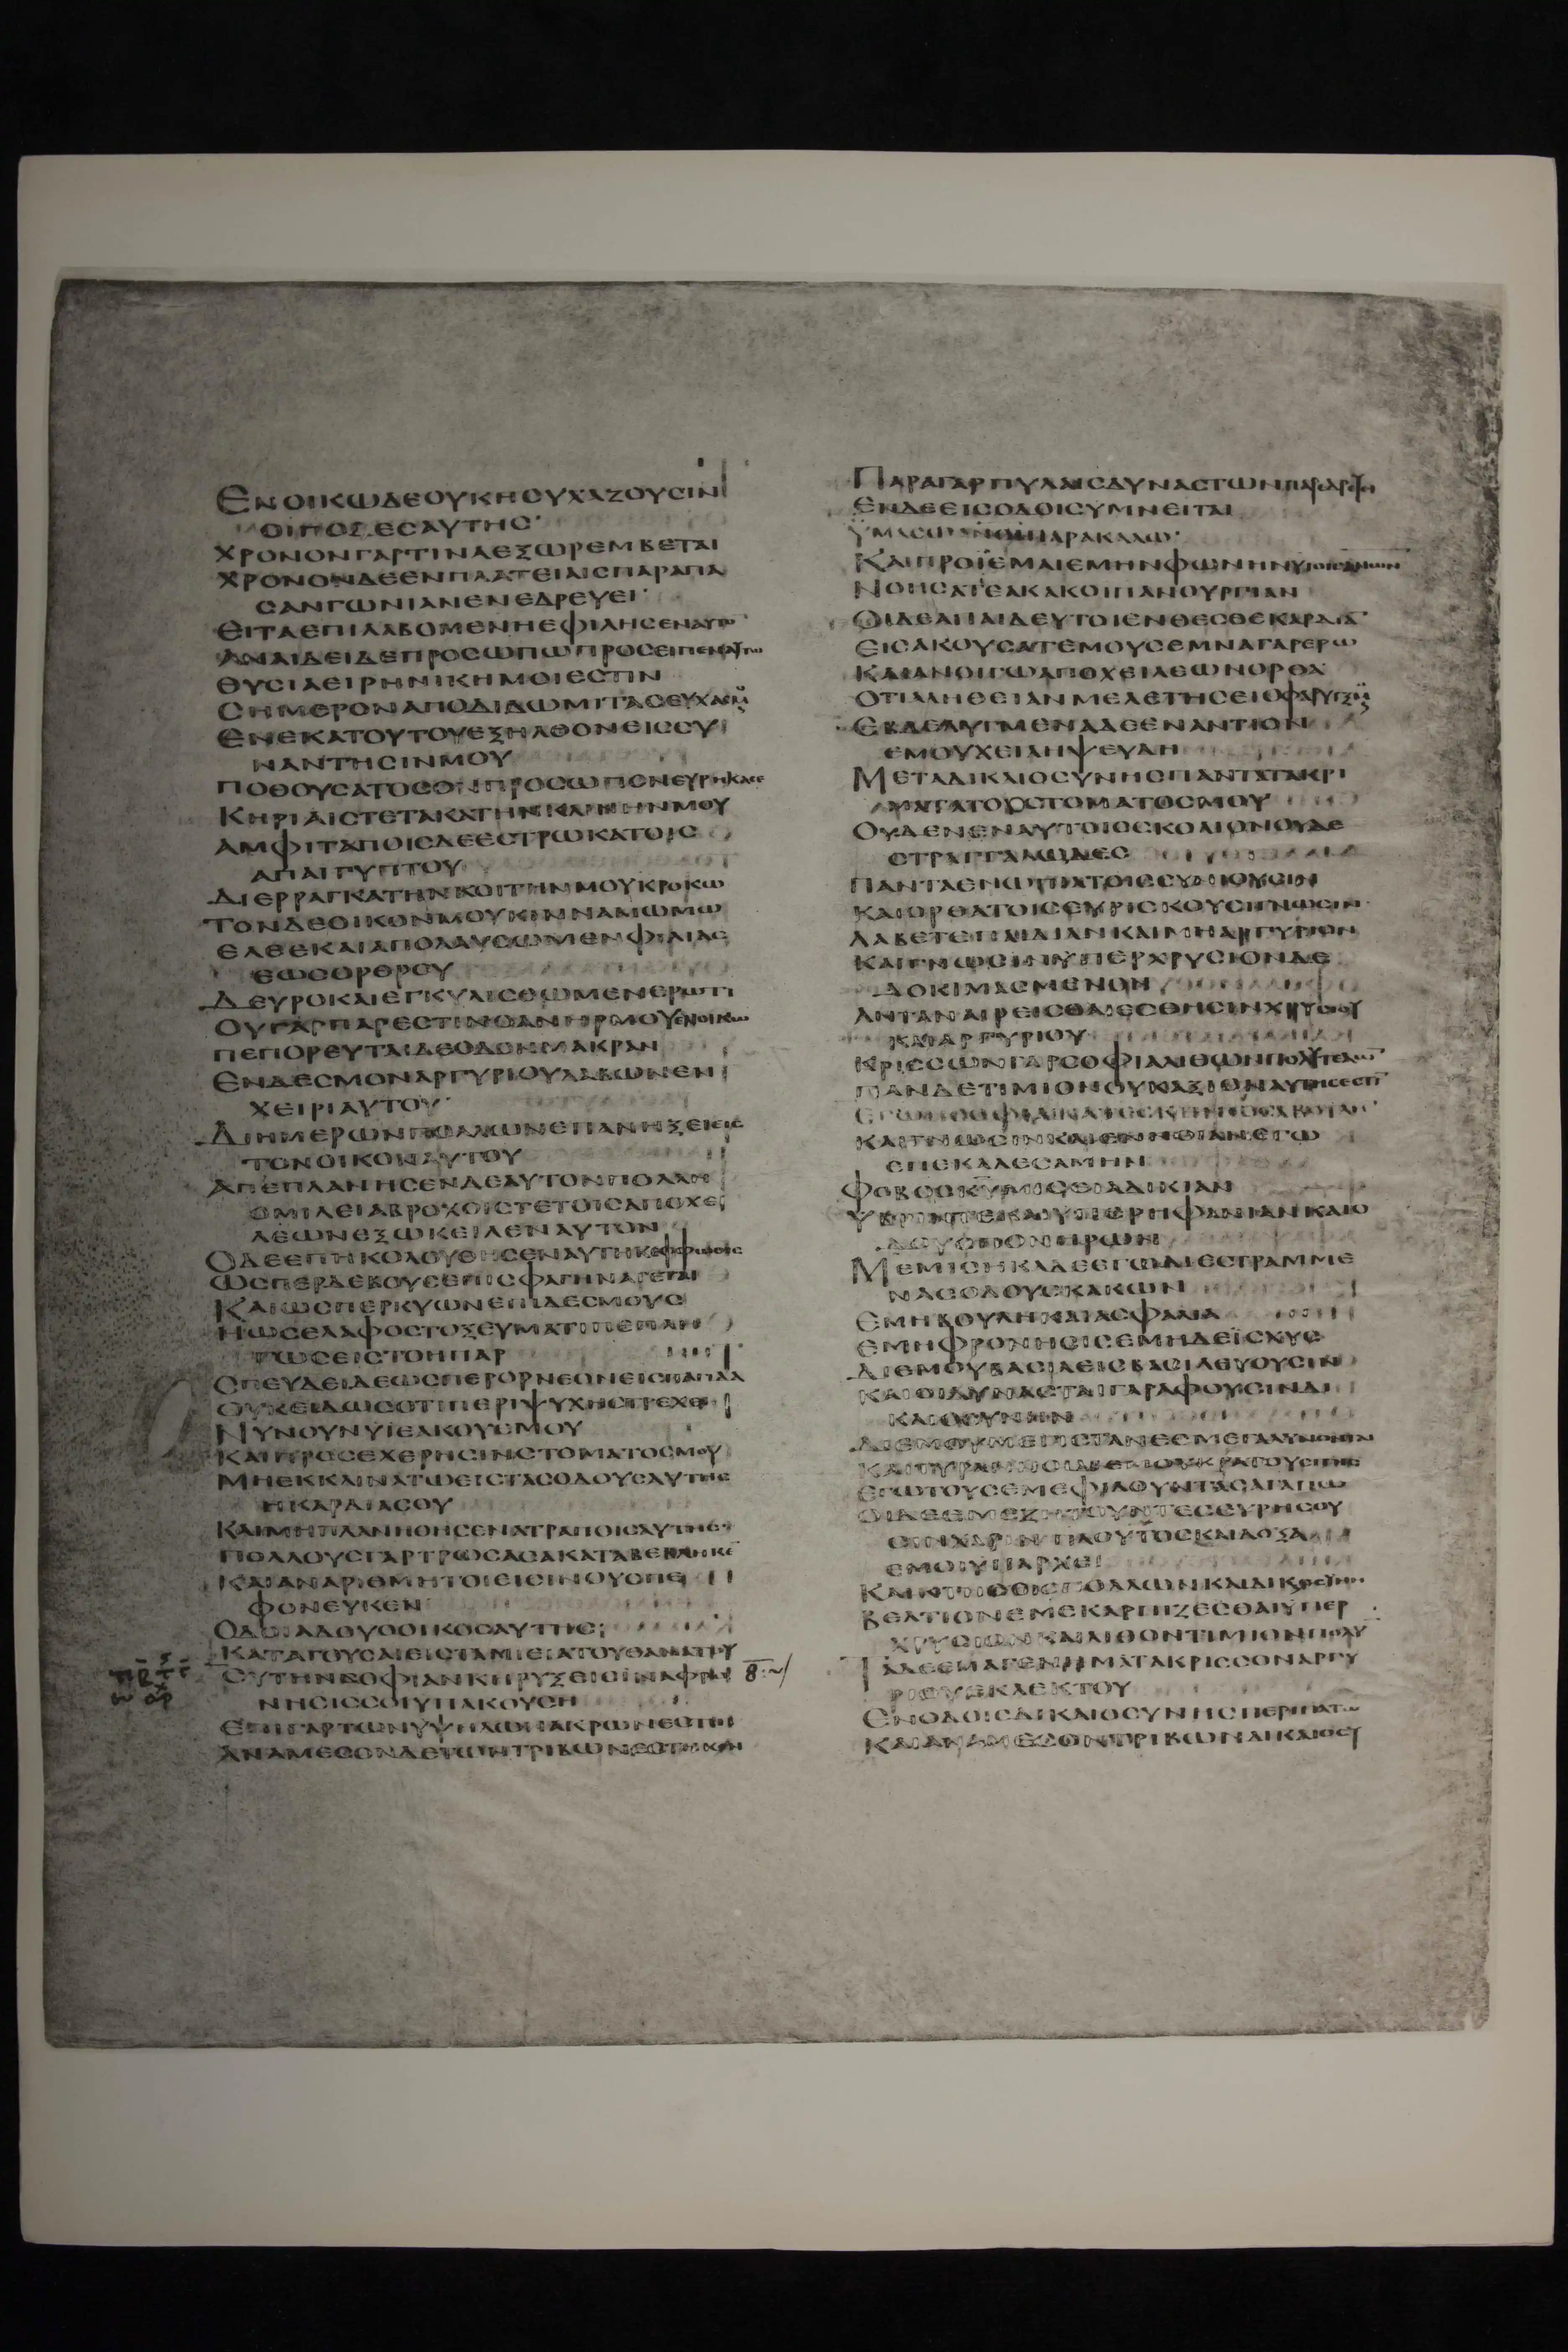 ΕΝΟΙΚΩΔΕΟΥΚΗϹΥΧΑΖΟΥϹΙΝ
ΟΙΠΟΔΕϹΑΥΤΗϹ
ΧΡΟΝΟΝΓΑΡΤΙΝΑΕΞΩΡΕΜΒΕΤΑΙ
ΧΡΟΝΟΝΔΕΕΝΠΛΑΤΕΙΑΙϹΠΑΡΑΠΑ
ϹΑΝΓΩΝΙΑΝΕΝΕΔΡΕΥΕΙ
ΕΙΤΑΕΠΙΛΑΒΟΜΕΝΗΕΦΙΛΗϹΕΝΑΥΤΟ
ΑΝΑΙΔΕΙΔΕΠΡΟϹΩΠΩΠΡΟϹΕΙΠΕΝΑΥΤΩ
ΘΥϹΙΑΕΙΡΗΝΙΚΗΜΟΙΕϹΤΙΝ
ϹΗΜΕΡΟΝΑΠΟΔΙΔΩΜΙΤΑϹΕΥΧΑϹΜΟΥ
ΕΝΕΚΑΤΟΥΤΟΥΕΞΗΛΘΟΝΕΙϹϹΥ
ΝΑΝΤΗϹΙΝΜΟΥ
ΠΟΘΟΥϹΑΤΟϹΟΝΠΡΟϹΩΠΟΝΕΥΡΗΚΑϹΕ
ΚΗΡΙΑΙϹΤΕΤΑΚΑΤΗΝΚΛΙΝΗΝΜΟΥ
ΑΜΦΙΤΑΠΟΙϹΔΕΕϹΤΡΩΚΑΤΟΙϹ
ΑΠΑΙΓΥΠΤΟΥ
ΔΙΕΡΡΑΓΚΑΤΗΝΚΟΙΤΗΝΜΟΥΚΡΟΚΩ
ΤΟΝΔΕΟΙΚΟΝΜΟΥΚΙΝΝΑΜΩΜΩ
ΕΛΘΕΚΑΙΑΠΟΛΑΥϹΩΜΕΝΦΙΛΙΑϹ
ΕΩϹΟΡΘΡΟΥ
ΔΕΥΡΟΚΑΙΕΓΚΥΛΙϹΘΩΜΕΝΕΡΩΤΙ
ΟΥΓΑΡΠΑΡΕϹΤΙΝΟΑΝΗΡΜΟΥΕΝΟΙΚΩ
ΠΕΠΟΡΕΥΤΑΙΔΕΟΔΟΝΜΑΚΡΑΝ
ΕΝΔΕϹΜΟΝΑΡΓΥΡΙΟΥΛΑΒΩΝΕΝ
ΧΕΙΡΙΑΥΤΟΥ
ΔΙΗΜΕΡΩΝΠΟΛΛΩΝΕΠΑΝΗΞΕΙΕΙϹ
ΤΟΝΟΙΚΟΝΑΥΤΟΥ
ΑΠΕΠΛΑΝΗϹΕΝΔΕΑΥΤΟΝΠΟΛΛΗ
ΟΜΙΛΕΙΑΒΡΟΧΟΙϹΤΕΤΟΙϹΑΠΟΧΕΙ
ΛΕΩΝΕΞΩΚΕΙΛΕΝΑΥΤΟΝ
ΟΔΕΕΠΗΚΟΛΟΥΘΗϹΕΝΑΥΤΗΚΕΠΦΩΘΕΙϹ
ΩϹΠΕΡΔΕΒΟΥϹΕΠΙϹΦΑΓΗΝΑΓΕΤΑΙ
ΚΑΙΩϹΠΕΡΚΥΩΝΕΠΙΔΕϹΜΟΥϹ
ΗΩϹΕΛΑΦΟϹΤΟΞΕΥΜΑΤΙΠΕΠΛΗ
ΓΩϹΕΙϹΤΟΗΠΑΡ
ϹΠΕΥΔΕΙΔΕΩϹΠΕΡΟΡΝΕΟΝΕΙϹΠΑΓΙΔΑ
ΟΥΚΕΙΔΩϹΟΤΙΠΕΡΙΨΥΧΗϹΤΡΕΧΕΙ
ΝΥΝΟΥΝΥΪΕΑΚΟΥΕΜΟΥ
ΚΑΙΠΡΟϹΕΧΕΡΗϹΙΝϹΤΟΜΑΤΟϹΜΟΥ
ΜΗΕΚΚΛΙΝΑΤΩΕΙϹΤΑϹΟΔΟΥϹΑΥΤΗϹ
ΗΚΑΡΔΙΑϹΟΥ
ΚΑΙΜΗΠΛΑΝΗΘΗϹΕΝΑΤΡΑΠΟΙϹΑΥΤΗϹ
ΠΟΛΛΟΥϹΓΑΡΤΡΩϹΑϹΑΚΑΤΑΒΕΒΛΗΚΕ
ΚΑΙΑΝΑΡΙΘΜΗΤΟΙΕΙϹΙΝΟΥϹΠΕ
ΦΟΝΕΥΚΕΝ
ΟΔΟΙΑΔΟΥΟΟΙΚΟϹΑΥΤΗϹ
ΚΑΤΑΓΟΥϹΑΙΕΙϹΤΑΜΙΕΙΑΤΟΥΘΑΝΑΤΟΥ
ϹΥΤΗΝϹΟΦΙΑΝΚΗΡΥΞΕΙϹΙΝΑΦΡΟ
ΝΗϹΙϹϹΟΙΥΠΑΚΟΥϹΗ
ΕΠΙΓΑΡΤΩΝΥΨΗΛΩΝΑΚΡΩΝΕϹΤΙΝ
ΑΝΑΜΕϹΟΝΔΕΤΩΝΤΡΙΒΩΝΕϹΤΗΚΕΝ
ΠΑΡΑΓΑΡΠΥΛΑΙϹΔΥΝΑϹΤΩΝΠΑΡΕΔΡΕΥΕΙ
ΕΝΔΕΕΙϹΟΔΟΙϹΥΜΝΕΙΤΑΙ
ΫΜΑϹΩΑΝΟΙΠΑΡΑΚΑΛΩ
ΚΑΙΠΡΟΪΕΜΑΙΕΜΗΝΦΩΝΗΝΥΙΟΙϹΑΝΩΝ
ΝΟΗϹΑΤΕΑΚΑΚΟΙΠΑΝΟΥΡΓΙΑΝ
ΟΙΔΕΑΠΑΙΔΕΥΤΟΙΕΝΘΕϹΘΕΚΑΡΔΙΑ
ΕΙϹΑΚΟΥϹΑΤΕΜΟΥϹΕΜΝΑΓΑΡΕΡΩ
ΚΑΙΑΝΟΙΓΩΑΠΟΧΕΙΛΕΩΝΟΡΘΑ
ΟΤΙΑΛΗΘΕΙΑΝΜΕΛΕΤΗϹΕΙΟΦΑΡΥΓΞΜΟΥ
ΕΒΔΕΛΥΓΜΕΝΑΔΕΕΝΑΝΤΙΟΝ
ΕΜΟΥΧΕΙΛΗΨΕΥΔΗ
ΜΕΤΑΔΙΚΑΙΟϹΥΝΗϹΠΑΝΤΑΤΑΚΡΙ
ΜΑΤΑΤΟΥϹΤΟΜΑΤΟϹΜΟΥ
ΟΥΔΕΝΕΝΑΥΤΟΙϹϹΚΟΛΙΟΝΟΥΔΕ
ϹΤΡΑΓΓΑΛΩΔΕϹ
ΠΑΝΤΑΕΝΩΠΙΑΤΟΙϹϹΥΝΙΟΥϹΙΝ
ΚΑΙΟΡΘΑΤΟΙϹΕΥΡΙϹΚΟΥϹΙΓΝΩϹΙΝ
ΛΑΒΕΤΕΠΑΙΔΙΑΝΚΑΙΜΗΑΡΓΥΡΙΟΝ
ΚΑΙΓΝΩϹΙΝΥΠΕΡΧΡΥϹΙΟΝΔΕ
ΔΟΚΙΜΑϹΜΕΝΟΝ
ΑΝΤΑΝΑΙΡΕΙϹΘΑΙϹϹΘΗϹΙΝΧΡΥϹΙΟΥ
ΚΑΙΑΡΓΥΡΙΟΥ
ΚΡΙϹϹΩΝΓΑΡϹΟΦΙΑΛΙΘΩΝΠΟΛΥΤΕΛΩΝ
ΠΑΝΔΕΤΙΜΙΟΝΟΥΚΑΞΙΟΝΑΥΤΗϹΕϹΤΙ
ΚΑΙΓΝΩϹΙΝΚΑΙΕΝΝΟΙΑΝΕΓΩ
ΕΠΕΚΑΛΕϹΑΜΗΝ
ΦΟΒΟϹΚΥΜΙϹΕΙΑΔΙΚΙΑΝ
ΥΒΡΙΝΤΕΚΑΙΥΠΕΡΗΦΑΝΙΑΝΚΑΙΟ
ΔΟΥϹΠΟΝΗΡΩΝ
ΜΕΜΙϹΗΚΑΔΕΕΓΩΔΙΕϹΤΡΑΜΜΕ
ΝΑϹΟΔΟΥϹΚΑΚΩΝ
ΕΜΗΒΟΥΛΗΚΑΙΑϹΦΑΛΙΑ
ΕΜΗΦΡΟΝΗϹΙϹΕΜΗΔΕΪϹΧΥϹ
ΔΙΕΜΟΥΒΑϹΙΛΕΙϹΒΑϹΙΛΕΥΟΥϹΙΝ
ΚΑΙΟΙΔΥΝΑϹΤΑΙΓΡΑΦΟΥϹΙΝΔΙ
ΚΑΙΟϹΥΝΗΝ
ΔΙΕΜΟΥΜΕΓΙϹΤΑΝΕϹΜΕΓΑΛΥΝΟΝΤΑΙ
ΚΑΙΤΥΡΑΝΝΟΙΔΙΕΜΟΥΚΡΑΤΟΥϹΙΓΗϹ
ΕΓΩΤΟΥϹΕΜΕΦΙΛΟΥΝΤΑϹΑΓΑΠΩ
ΟΙΔΕΕΜΕΖΗΤΟΥΝΤΕϹΕΥΡΗϹΟΥ
ϹΙΝΧΑΡΙΝΠΛΟΥΤΟϹΚΑΙΔΟΞΑ
ΕΜΟΙΥΠΑΡΧΕΙ
ΚΑΙΚΤΗϹΙϹΠΟΛΛΩΝΚΑΙΔΙΚΑΙΟϹΥΝΗ
ΒΕΛΤΙΟΝΕΜΕΚΑΡΠΙΖΕϹΘΑΙΥΠΕΡ
ΧΡΥϹΙΟΝΚΑΙΛΙΘΟΝΤΙΜΙΟΝΠΟΛΥ
ΤΑΔΕΕΜΑΓΕΝΗΜΑΤΑΚΡΙϹϹΟΝΑΡΓΥ
ΡΙΟΥΕΚΛΕΚΤΟΥ
ΕΝΟΔΟΙϹΔΙΚΑΙΟϹΥΝΗϹΠΕΡΙΠΑΤΩ
ΚΑΙΑΝΑΜΕϹΟΝΤΡΙΒΩΝΔΙΚΑΙΟϹΥ